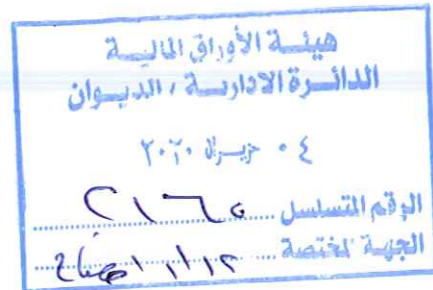 هيئة الأوراق المالية
الدائرة الادارية / الديوان
٠٤ حزيران ٢٠٢٠
الرقم المتسلسل ٢١٦٥
الجهة المختصة الافصاح